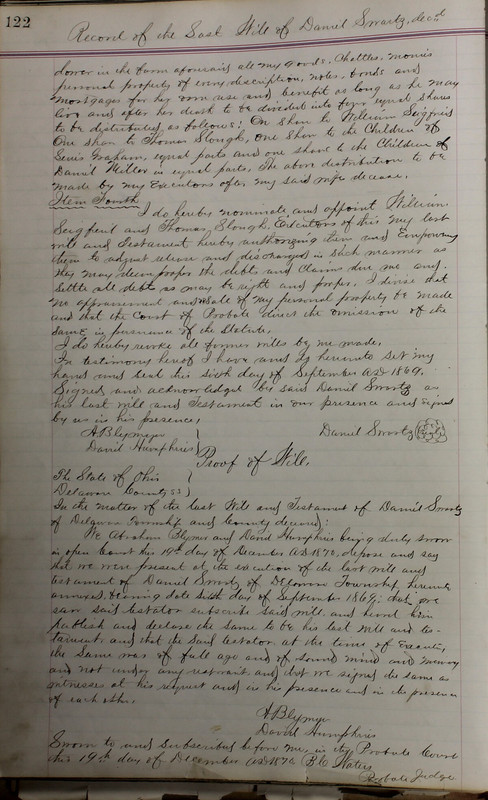 122
Record of the Last Will of Daniel Swartz, decd
dower in the farm aforesaid all my goods, Chattles, monies
personal property of every discription, notes, bonds and
mortgages for her own use and benefit as long as he may
live and after her death to be divided into four equal shares
to be distributed as follows: One Share to William Sigfried
One share to Thomas Slough, one share to the Children of
Lewis Graham, equal parts and one share to the Children of
Daniel Miller in equal parts, The above distribution to be
made by my Executors after my said wifes decease.
Item Fourth
I do hereby nominate and appoint William
Seigfried and Thomas Slough, Executors of this my last
will and Testament hereby authorizing them and Empowering
them to adjust release and discharge in such manner as
they may deem proper the debts and Claims due me and
Settle all debts as may be right and proper. I desire that
no appraisement and Sale of my personal property be made
and that the Court of Probate direct the omission of the
Same in pursuance of the Statute.
I do hereby revoke all former wills by me made.
In testimony hereof I have and by hereunto Set my
hand and Seal this sixth day of September A.D. 1869.
Signed and acknowledged by said Daniel Swartz as
his last will and Testament in our presence and Signed
by us in his presence,
A Blymyer
David Humphries
Daniel Swartz (Seal)
Proof of Will.
The State of Ohio
Delaware County ss
In the Matter of the last Will and Testament of Daniel Swartz
of Delaware Township and County deceased:
We Abraham Blymer and David Humphries being duly sworn
in open Court this 19th day of December A.D. 1870, depose and say
that we were present at the execution of the last will and
testament of Daniel Swartz of Delaware Township hereunto
annexed, bearing date Sixth day of September 1869; that we
saw said testator subscribe said will, and heard him
publish and declare the same to be his last will and tes-
tament; and that the said testator at the time of Execut,
the Same was of full age and of sound mind and memory
and not under any restraint, and that we signed the same as
witnesses at his request and in his presence and in the presence
of each other.
A Blymyer
David Humphries
Sworn to and Subscribed before me in the Probate Court
this 19th day of December A.D. 1870 B.C. Waters
Probate Judge